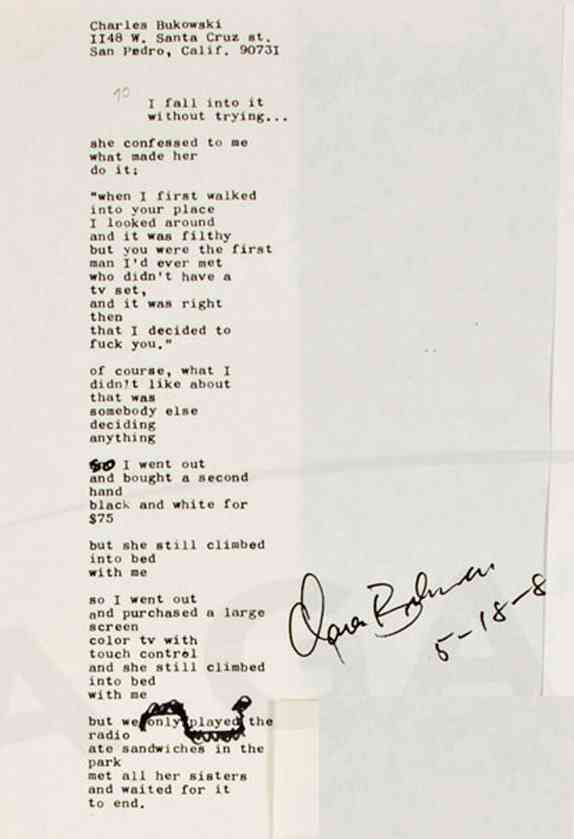 Charles Bukowski
1148 W. Santa Cruz st.
San Pedro, Calif. 90731
I fall into it
without trying...
she confessed to me
what made her
do it;
"when I first walked
into your place
I looked around
and it was filthy
but you were the first
man I'd ever met
who didn't have a
tv set,
and it was right
then
that I decided to
fuck you."
of course, what I
didn't like about
that was
somebody else
deciding
anything
I went out
and bought a second
hand
black and white for
$75
but she still climbed
into bed
with me
so I went out
and purchased a large
screen
color tv with
touch control
and she still climbed
into bed
with me
but we only played the
radio
ate sandwiches in the
park
met all her sisters
and waited for it
to end.
5-18-8